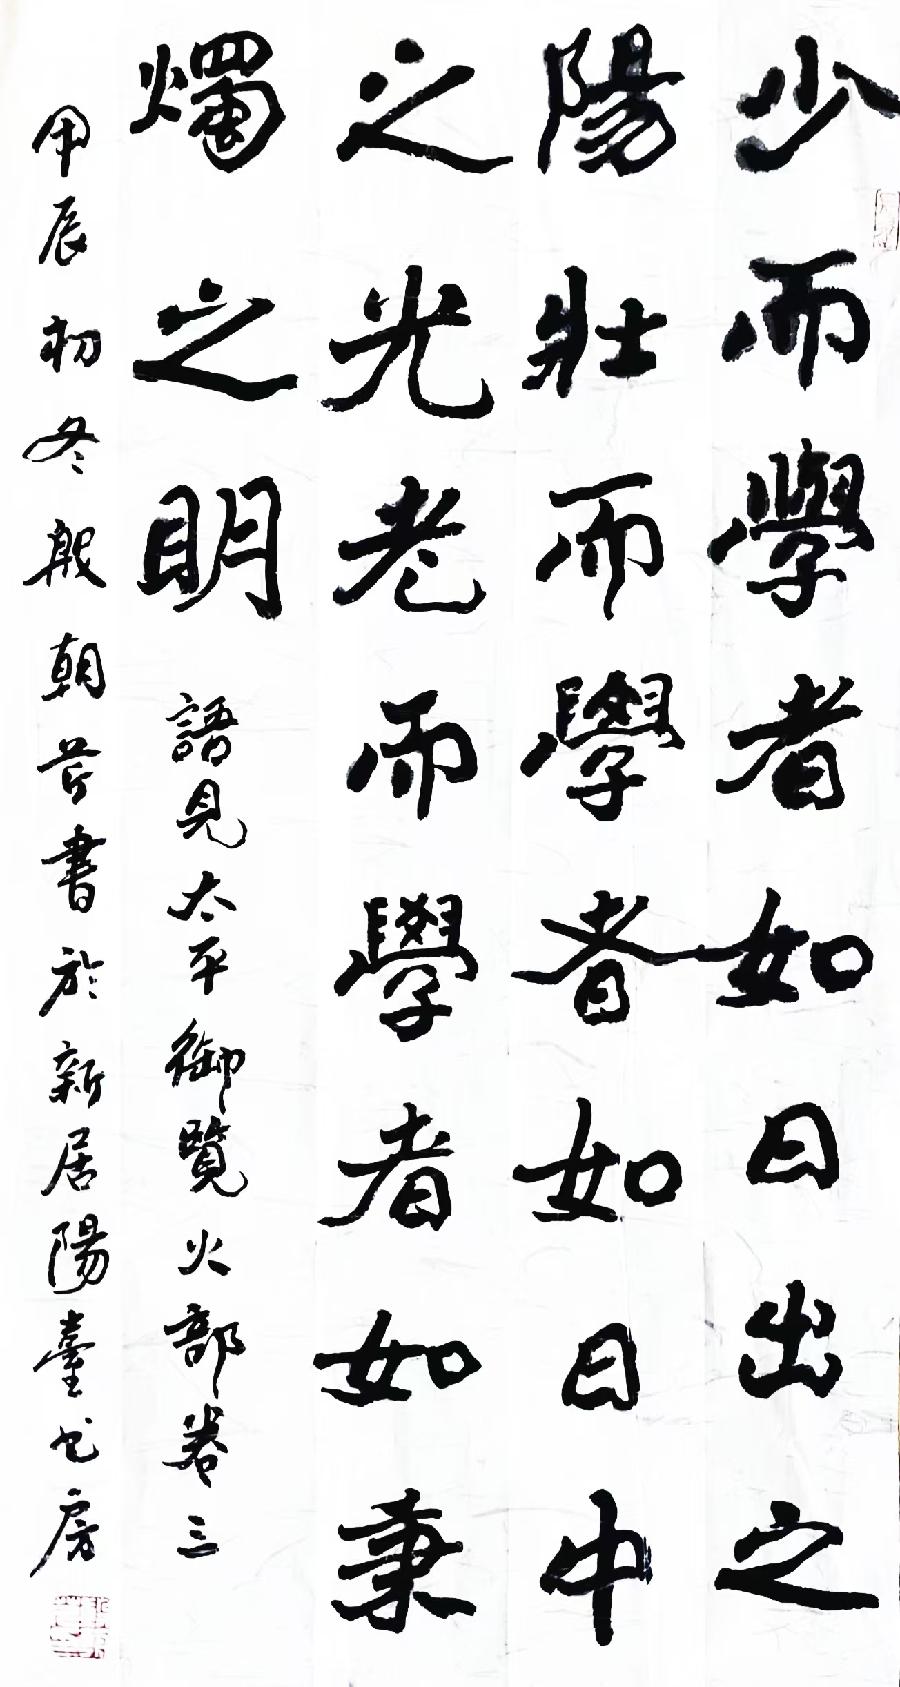 少而學者如日出之
陽壯而學者如日中
之光老而學者如秉
燭之明
語見太平御覽火部卷三
甲辰初冬殷朝芹書於新居陽臺書房